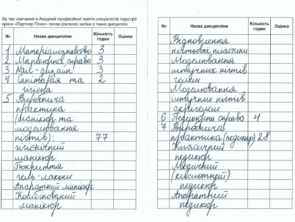 За час навчання в Академії професійної освіти спеціалістів індустрії
краси «Партнер Плюс» склав (склала) заліки з таких дисциплін
№ Назва дисципліни Кількість годин Оцінка
1 Матеріалознавство 3
2 Манікюрна справа 3
3 Nail-дизайн 3
4 Санітарія та 2
гігієна
5 Виробнича
практика
(манікюр та
моделювання
нігтів): 77
класичний
манікюр
Покриття
гель-лаком
Апаратний манікюр
Комбінований
манікюр
№ Назва дисципліни Кількість годин Оцінка
Відновлення
нігтьової пластини
Моделювання
штучних нігтів
гелем
Моделювання
штучних нігтів
6 Педикюрна справа 4
7 Виробнича
практика (педикюр) 28
Класичний
педикюр
Медичний
(кислотний)
педикюр
Апаратний
педикюр